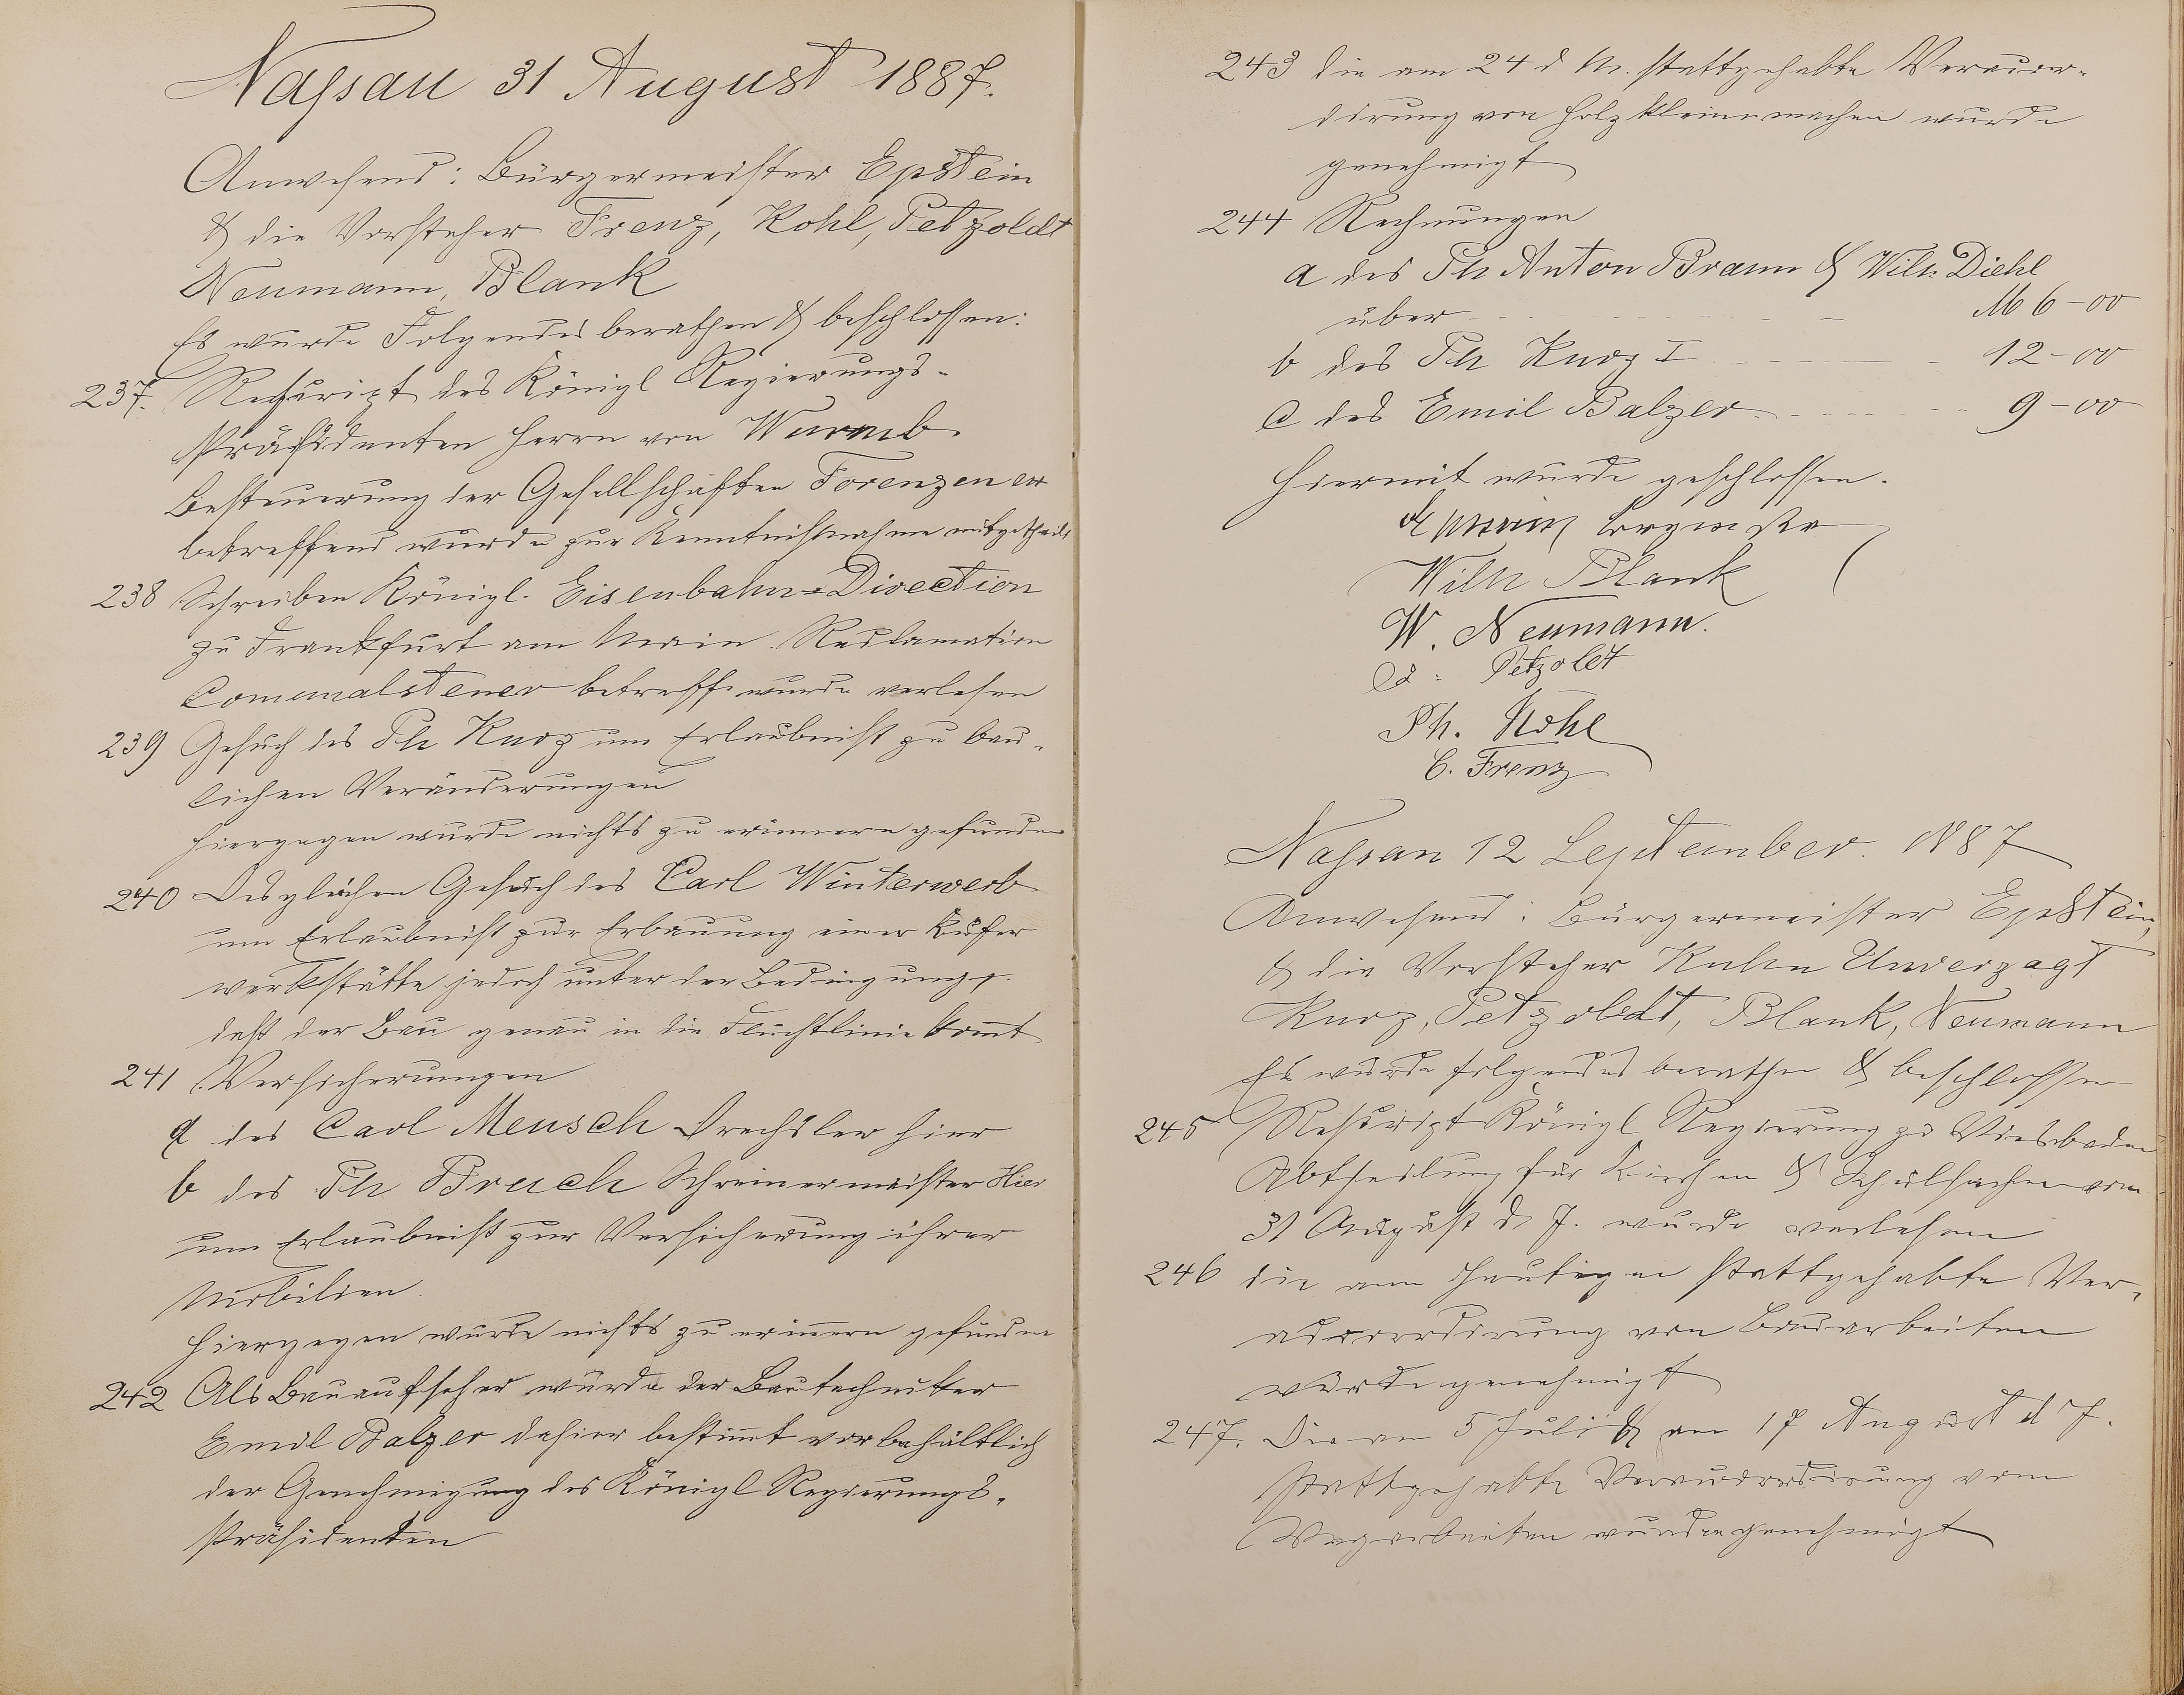 Nassau 31 August 1887.
Anwesend: Bürgermeister Epstein
& die Vorsteher Frenz, Kohl, Petzoldt
Neumann, Blank
Es wurde Folgendes berathen & beschlossen:
237. Rescript des Königl Regierungs-
Präsidenten Herrn von Wurmb
Besteuerung der Gesellschaften Forenzen etc
betreffend wurde zur Kenntnißnahme mitgetheilt
238 Schreiben Königl. Eisenbahn-Direction
zu Frankfurt am Main Reclamation
Comunalsteuer betreff. wurde verlesen
239 Gesuch des Ph Kurz um Erlaubniß zu bau-
lichen Veränderungen
hiergegen wurde nichts zu erinnern gefunden
240 Desgleichen Gesuch des Carl Winterwerb
um Erlaubniß zur Erbauung einer Küfer
werkstätte jedoch unter der Bedingung,
daß der Bau genau in die Fluchtlinie komt
241 Versicherungen
a des Carl Meusch Drechsler hier
b des Ph Bruch Schreinermeister Hier
um Erlaubniß zur Versicherung ihrer
Mobilien
hiergegen wurde nichts zu erinnern gefunden
242 Als Bauaufseher wurde der Bautechniker
Emil Balzer dahier bestimt vorbehältlich
der Genehmigung des Königl Regierungs-
Präsidenten
243 die am 24 d M. stattgehabte Veraccor-
dirung von Holzkleinemachen wurde
genehmigt
244 Rechnungen
a des Ph Anton Braun & Wilh Diehl
über M 6-00
b des Ph Kurz I 12-00
c des Emil Balzer 9-00
Hiermit wurde geschlossen.
Epstein
Wilh Blank
W. Neumann.
Petzoldt
Ph. Kohl
C. Frenz
Nassau 12 September 1887
Anwesend: Bürgermeister Epstein,
& die Vorsteher Kuhn Unverzagt
Kurz, Petzoldt, Blank, Neumann
Es wurde folgendes berathen & beschlossen
245 Rescript Königl Regierung zu Wiesbaden
Abtheilung für Kirchen & Schulsachen vom
31 August d J. wurde verlesen
246 die am Heutigen stattgehabte Ver-
accordirung von Bauarbeiten
wurde genehmigt
247. Die am 5 Juli & am 17 August d J.
stattgehabte Veraccordirung vom
Wegarbeiten wurden genehmigt